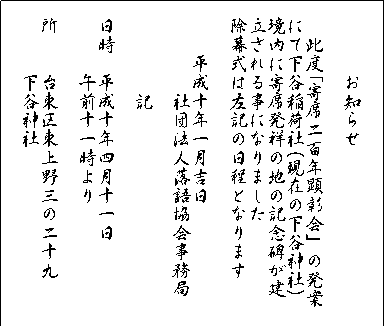 お知らせ
此度「寄席二百年顕彰会」の発案
にて下谷稲荷社(現在の下谷神社)
境内に寄席発祥の地の記念碑が建
立される事になりました
除幕式は左記の日程となります
平成十年一月吉日
社団法人落語協会事務局
記
日時 平成十年四月十一日
午前十一時より
所 台東区東上野三の二十九
下谷神社